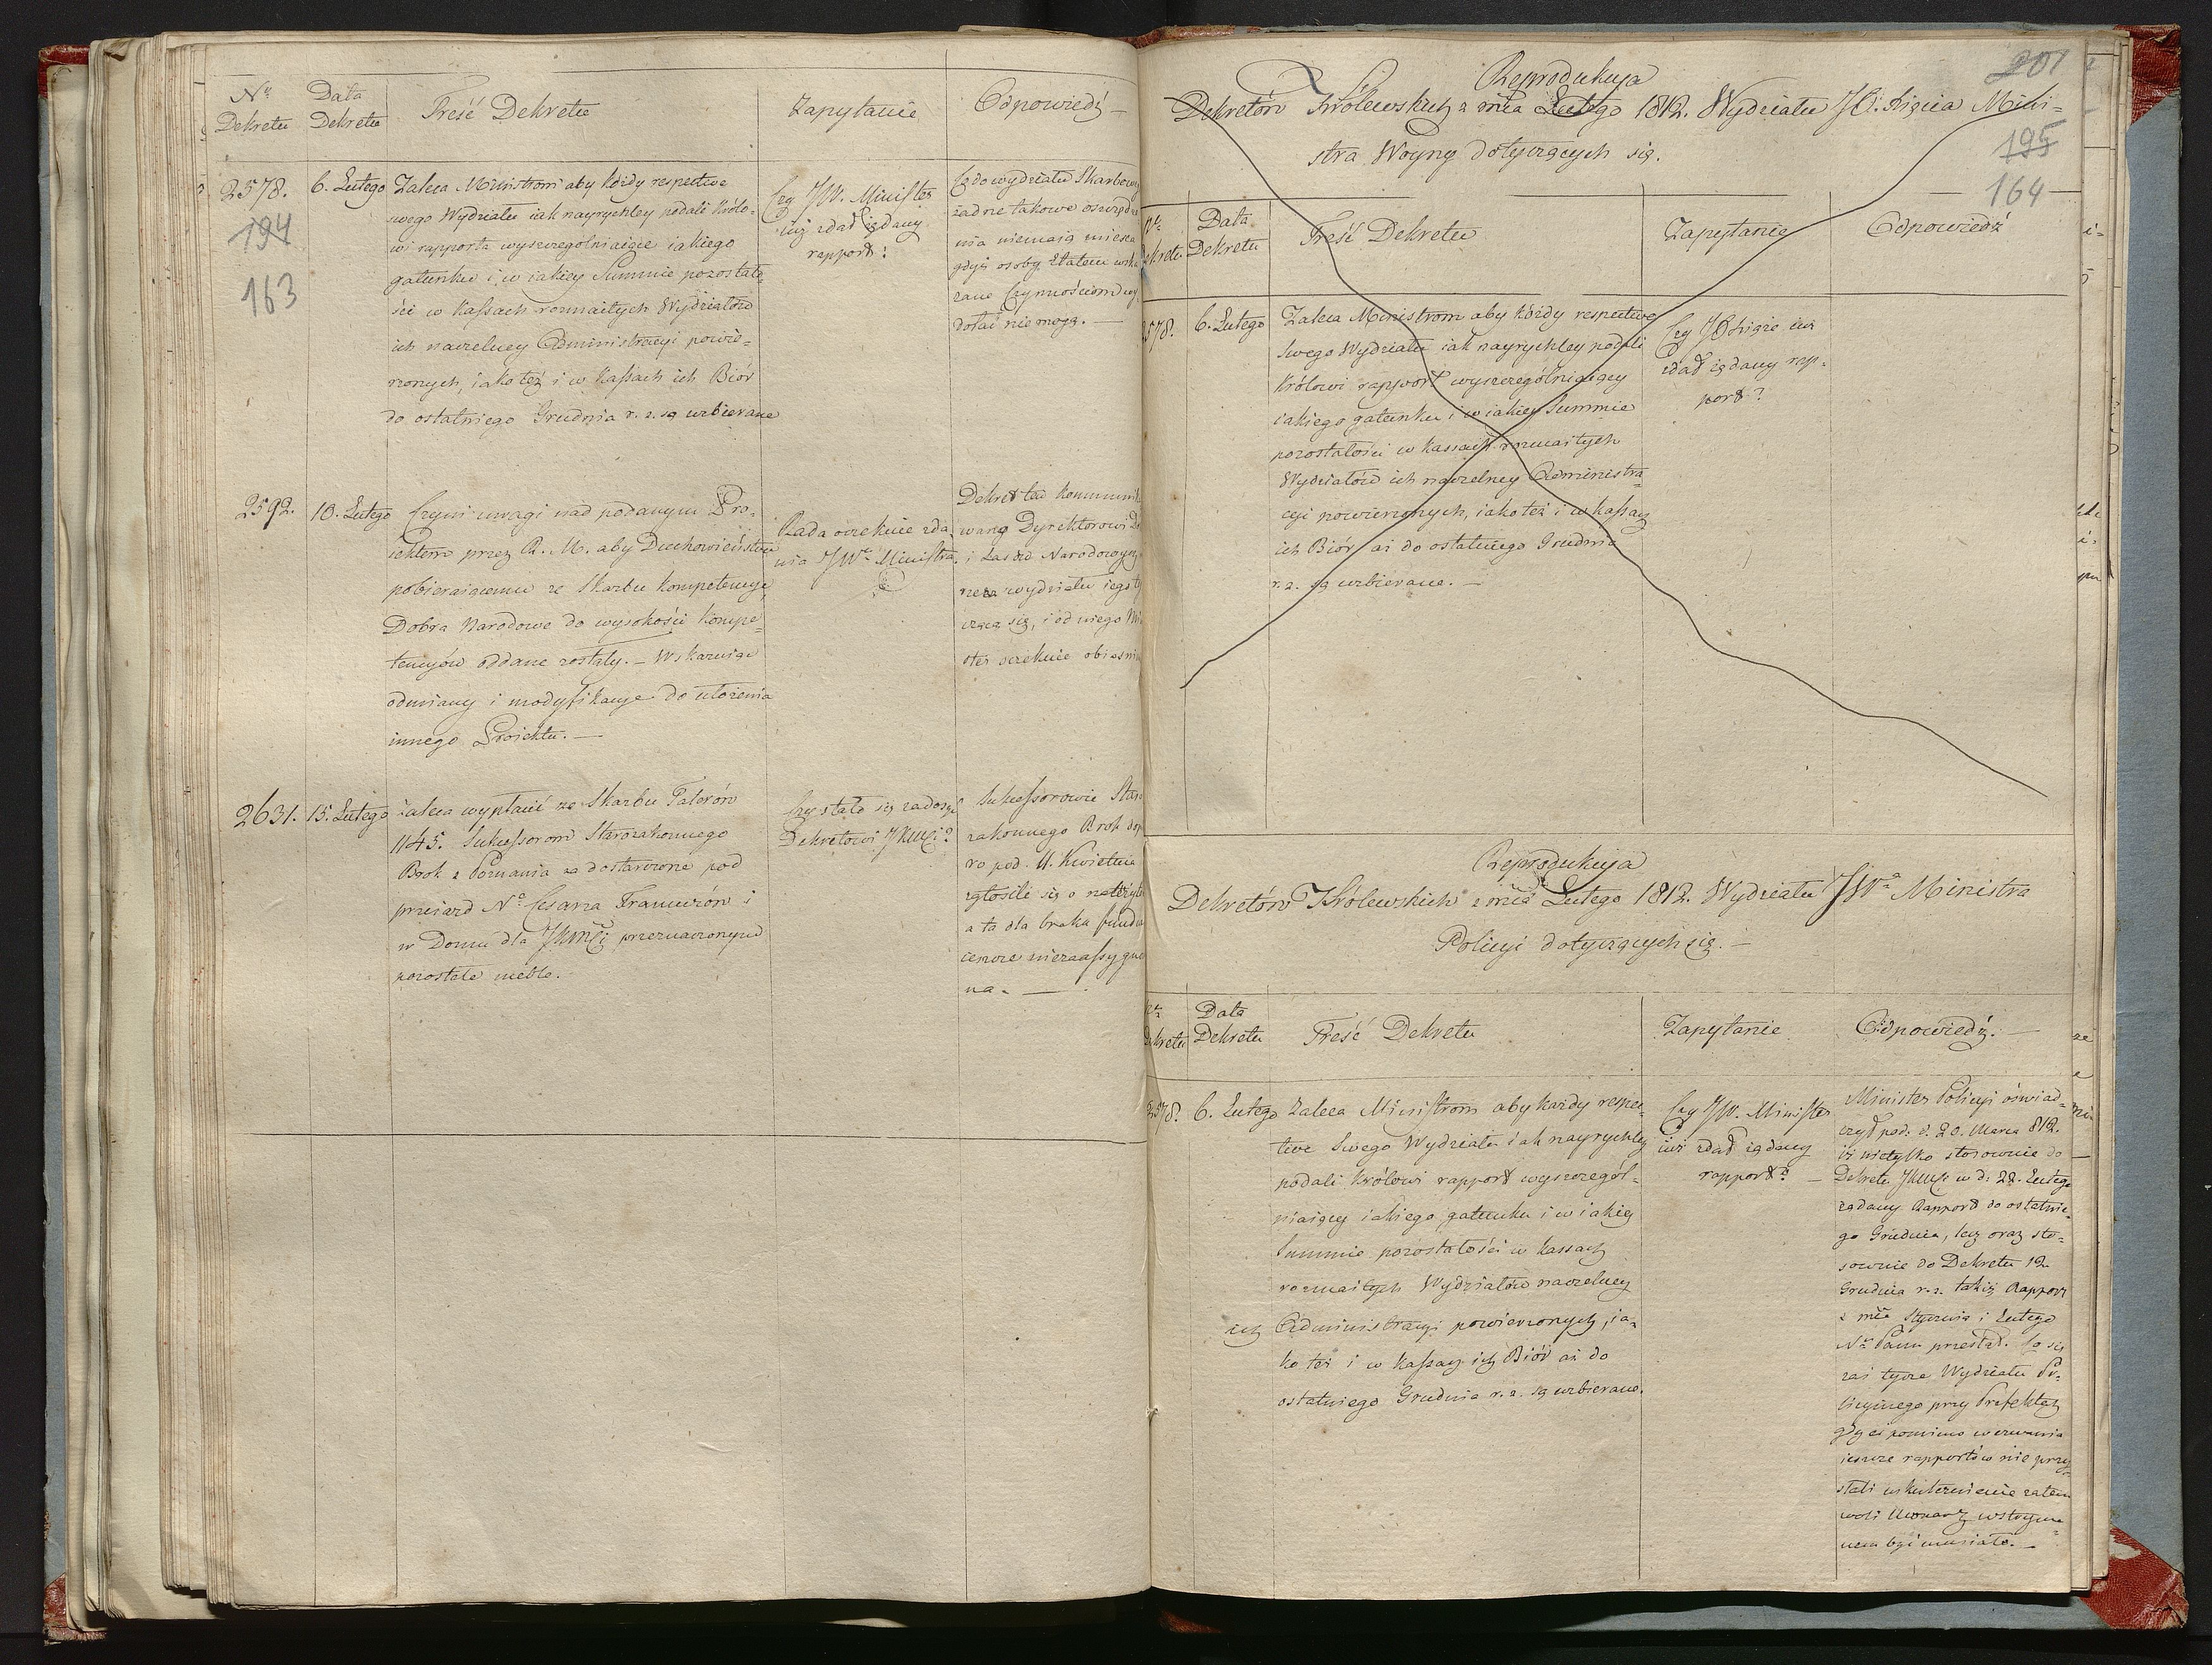 Nr Dekretu
Data Dekretu
Treść Dekretu
Zapytanie
Odpowiedź —
2578.
194
163
6. Lutego
Zaleca Ministrom aby każdy respective
swego Wydziału iak nayrychley podali Królo-
wi rapporta wyszczególniaiące iakiego
gatunku i w iakiey Summie pozostało-
ści w Kassach rozmaitych Wydziałów
ich naczelney Administracyi powie-
rzonych, iako też i w Kassach ich Biór
do ostatniego Grudnia r. z. są uzbierane
Czy JW. Minister
iuż zdał żądany
rapport?
Co do wydziału Skarbowego
żadne takowe oszczędze
nia niemaią mieysca
gdyż osoby Etatem wska
zane Czynnościom wy
dołać nie mogą. —
2592.
10. Lutego
Czyni uwagi nad podanym Pro-
iektem przez R. M. aby Duchowieństwu
pobieraiącemu ze Skarbu kompetencye
Dobra Narodowe do wysokości kompe-
tencyów oddane zostały. — Wskazuiąc
odmiany i modyfikacye do ułożenia
innego Proiektu. —
Rada oczekuie zda
nia JWo Ministra.
Dekret ten kommuniko
wany Dyrektorowi Dó
i Lasów Narodowych
rzecz wydziału iego ty
cząca się, i od niego Mi
ster oczekuie obiaśnie
2631.
15. Lutego
Zaleca wypłacić ze Skarbu Talerów
1145. Sukcessorom Starozakonnego
Brok z Poznania za dostarczone pod
przeiazd No Cesarza Francuzów i
w Domu dla JKMCi przeznaczonym
pozostałe meble.
Czy stało się zadosyć
Dekretowi JKMCi?
Sukcessorowie Staro
zakonnego Brok dop
ro pod. 11. Kwietnia
zgłosili się o należyto
a ta dla braku fundu
ieszcze niezaassygno
na. —
201
195
164
Reprodukcya
Dekretów Królewskich z mca Lutego 1812. Wydziału JO. Xięcia Mini-
stra Woyny dotyczących się.
Nr
Dekretu
Data
Dekretu
Treść Dekretu
Zapytanie
Odpowiedź
2578.
6. Lutego
Zaleca Ministrom aby każdy respective
swego Wydziału iak nayrychley podali
Królowi rapport wyszczególniaiący
iakiego gatunku i w iakiey Summie
pozostałości w Kassach rozmaitych
Wydziałów ich naczelney Administra-
cyi powierzonych, iako też i w kassach
ich Biór aż do ostatniego Grudnia
r. z. są uzbierane. —
Czy JO Xiąże iuż
zdał żądany rap-
port?
Reprodukcya
Dekretów Królewskich z mca Lutego 1812. Wydziału JWo Ministra
Policyi dotyczących się. —
Nr
Dekretu
Data
Dekretu
Treść Dekretu
Zapytanie
Odpowiedź. —
2578.
6. Lutego
Zaleca Ministrom aby każdy respec-
tive swego Wydziału iak nayrychley
podali Królowi rapport wyszczegól-
niaiący iakiego gatunku i w iakiey
Summie pozostałości w Kassach
rozmaitych Wydziałów naczelney
ich Administracyi powierzonych, ia-
ko też i w Kassach ich Biór aż do
ostatniego Grudnia r. z. są uzbierane.
Czy JW. Minister
iuż zdał żądany
rapport? —
Minister Policyi oświad-
czył pod: d. 20. Marca 812.
iż nietylko stosownie do
Dekretu JKMCi w d: 22. Lutego
żądany Rapport do ostatnie-
go Grudnia, lecz oraz sto-
sownie do Dekretu 12
Grudnia r. z. takiż Rapport
z mca Stycznia i Lutego
Nu Panu przesłał. Co się
zaś tycze Wydziału Po-
licyinego przy Prefektach
gdy ci pomimo wezwania
ieszcze rapportów nie przy-
słali uskutecznienie zatem
woli Monarchy wstrzyma-
nem być musiało. —